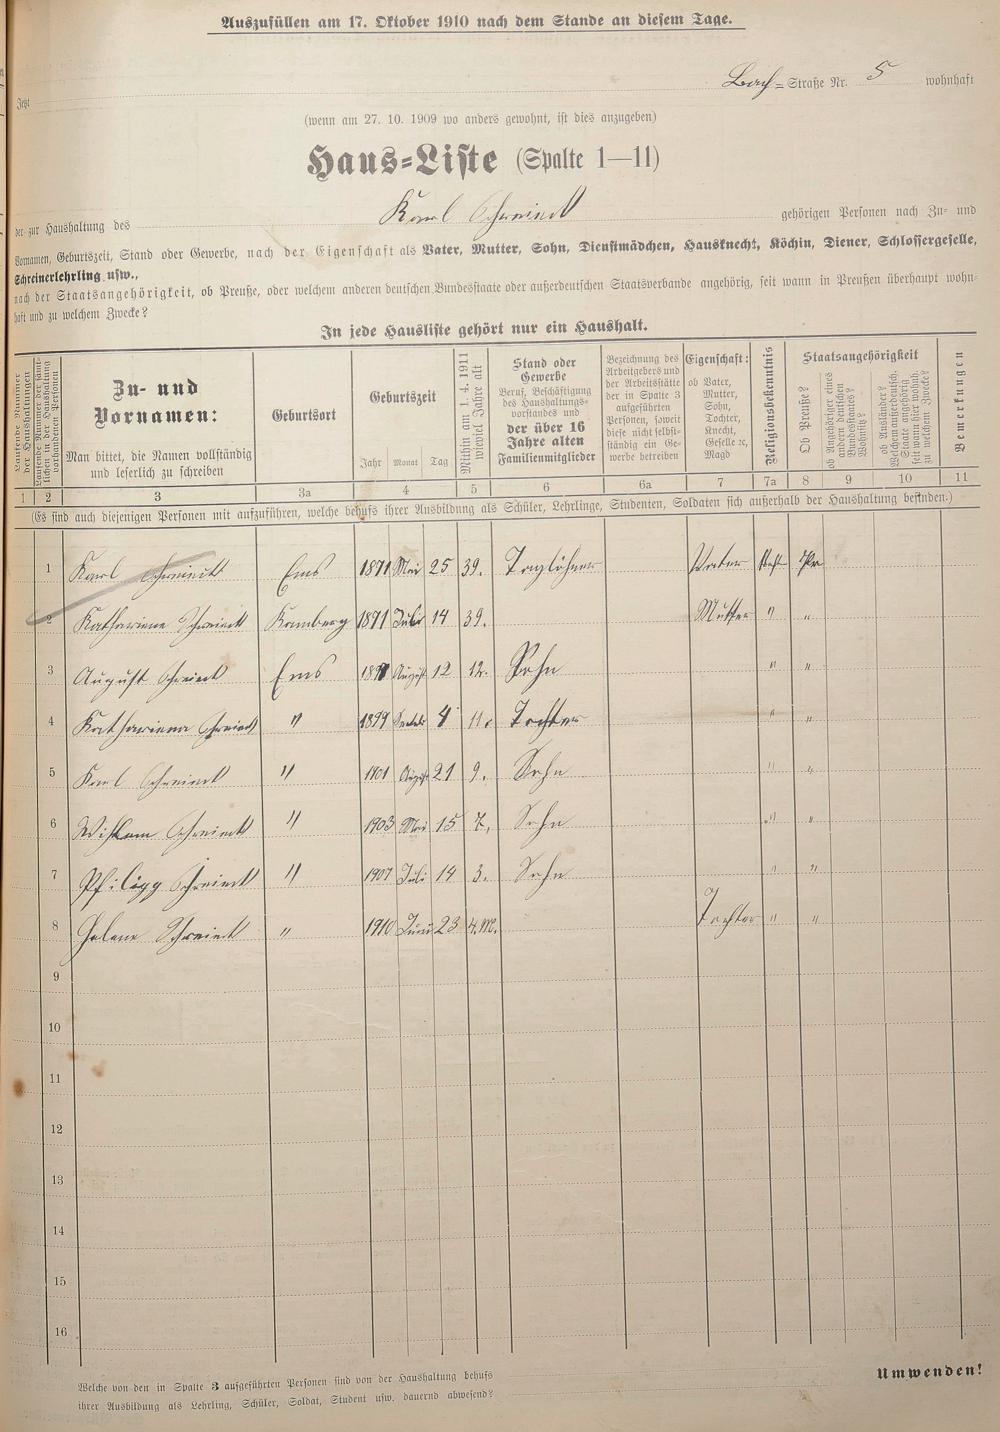 Auszufüllen am 17. Oktober 1910 nach dem Stande an diesem Tage.
Jetzt Bach=Straße Nr. 5 wohnhaft
(wenn am 27. 10. 1909 wo anders gewohnt, ist dies anzugeben)
Haus=Liste (Spalte 1—11)
der zur Haushaltung des Karl gehörigen Personen nach Zu= und
Vornamen, Geburtszeit, Stand oder Gewerbe, nach der Eigenschaft als Vater, Mutter, Sohn, Dienstmädchen, Hausknecht, Köchin, Diener, Schlossergeselle,
Schreinerlehrling usw.,
nach der Staatsangehörigkeit, ob Preuße, oder welchem anderen deutschen Bundesstaate oder außerdeutschen Staatsverbande angehörig, seit wann in Preußen überhaupt wohn=
haft und zu welchem Zwecke?
In jede Hausliste gehört nur ein Haushalt.
Laufende Nummer der Haushaltungen
Laufende Nummer der sämtlichen in der Haushaltung vorhandenen Personen
Zu= und Vornamen:
Man bittet, die Namen vollständig und leserlich zu schreiben
Geburtsort
Geburtszeit
Jahr Monat Tag
Mithin am 1. 4. 1911 wieviel Jahre alt
Stand oder Gewerbe
Beruf, Beschäftigung des Haushaltungs=vorstandes und der über 16 Jahre alten Familienmitglieder
Bezeichnung des Arbeitgebers und der Arbeitsstätte der in Spalte 3 aufgeführten Personen, soweit diese nicht selbst=ständig ein Ge=werbe betreiben
Eigenschaft:
ob Vater, Mutter, Sohn, Tochter, Knecht, Geselle ꝛc, Magd
Religionsbekenntnis
Staatsangehörigkeit
Ob Preuße?
ob Angehöriger eines andern deutschen Bundesstaates? Wohnsitz?
ob Ausländer? Welchem außerdeutsch. Staate angehörig seit wann hier wohnh. zu welchem Zwecke?
Bemerkungen
1 2 3 3a 4 5 6 6a 7 7a 8 9 10 11
(Es sind auch diejenigen Personen mit aufzuführen, welche behufs ihrer Ausbildung als Schüler, Lehrlinge, Studenten, Soldaten sich außerhalb der Haushaltung befinden.)
1 Karl Ems 1871 Mai 25 39. Taglöhner Vater Pr
2 Katharina Kamberg 1871 Juli 14 39. Mutter " "
3 August Ems August 12 12. Sohn " "
4 Katharina " 1899 4 11. Tochter " "
5 Karl " 1901 August 21 9. Sohn " "
6 Wilhelm " 1903 Mai 15 7. Sohn " "
7 Philipp " 1907 Juli 14 3. Sohn " "
8 Helene " 1910 Juni 23 4. M. Tochter " "
9
10
11
12
13
14
15
16
Umwenden!
Welche von den in Spalte 3 aufgeführten Personen sind von der Haushaltung behufs
ihrer Ausbildung als Lehrling, Schüler, Soldat, Student usw. dauernd abwesend?